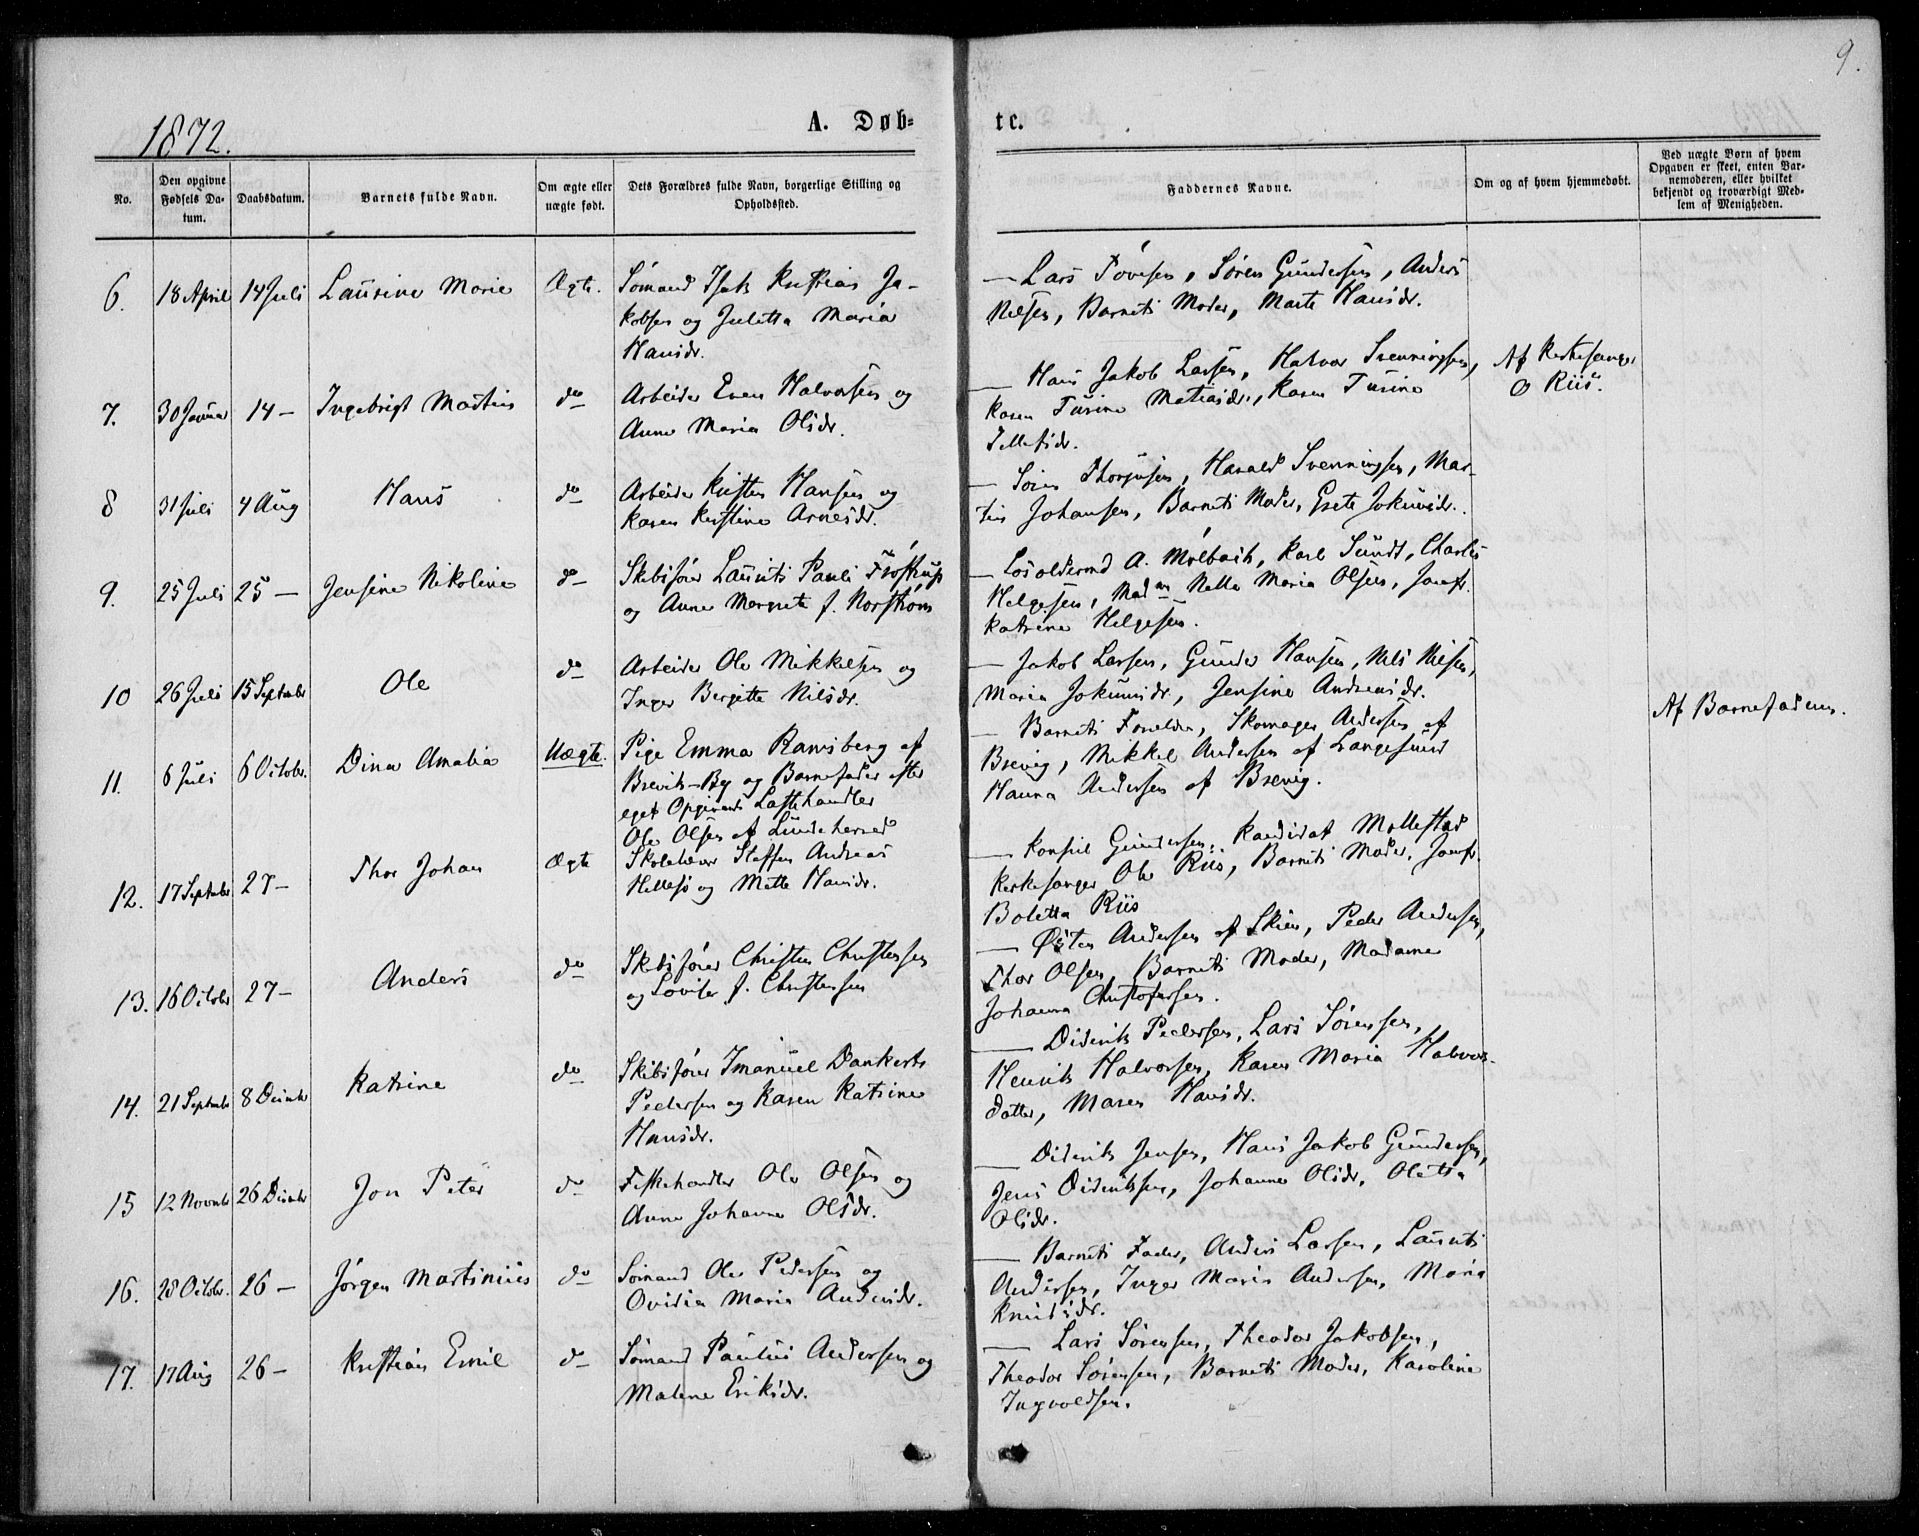 9.
1872.
A. Døb- te.
No.
Den opgivne Fødsels Da-tum.
Daabsdatum.
Barnets fulde Navn.
Om ægte eller uægte født.
Dets Forældres fulde Navn, borgerlige Stilling og Opholdssted.
Faddernes Navne.
Om og af hvem hjemmedøbt.
Ved uægte Børn af hvem Opgaven er skeet, enten Bar-nemoderen, eller hvilket bekjendt og troværdigt Med-lem af Menigheden.
6. 18 April 14 Juli Laurine Marie Ægte.
Sømand Isak Kristian Ja-
kobsen og Juletta Maria
Hansdr.
— Lars Tovesen, Søren Gundersen, Anders
Nilsen, Barnets Moder, Marte Hansdr.
7. 30 Januar 14 — Ingebrigt Martin do
Arbeider Even Halvorsen og
Anne Maria Olsdr.
— Hans Jakob Larsen, Halvor Svenningsen,
Karen Turine Matiasdr., Karen Turine
Tellefsdr.
Af Kirkesanger
O Riis.
8 31 Juli 4 Aug Hans do
Arbeider Kristen Hansen og
Karen Kirstine Arnesdr.
— Søren Thorjusen, Harald Svenningsen, Mar-
tin Johansen, Barnets Moder, Grete Jokumsdr.
9. 25 Juli 25 — Jensine Nikoline do
Skibsfører Laurits Pauli Frøstrup
og Anne Margrete f. Norstrøm
— Losoldermd A. Mølbach, Karl Sundt, Charles
Helgesen, Madm Nella Maria Olsen, Jomfr.
Katrine Helgesen.
10 26 Juli 15 Septmbr Ole do
Arbeider Ole Mikkelsen og
Inger Bergitte Nilsdr.
— Jakob Larsen, Gunder Hansen, Nils Nilsen,
Maria Jokumsdr, Jensine Andreasdr.
11. 6 Juli 6 Octobr. Dina Amalia Uægte.
Pige Emma Ramsberg af
Brevik-By og Barnefader efter
eget Opgivende Lasthandler
Ole Olsen af Lundeherred
— Barnets Forældre, Skomager Andersen af
Brevig, Mikkel Andersen af Langesund
Hanna Andersen af Brevig.
Af Barnefaderen.
12. 17 Septmbr 27 — Thor Johan Ægte
Skolelærer Steffen Andreas
Hellesø og Mette Hansdr.
— Konsul Gundersen, Kandidat Mollestad
Kirkesanger Ole Riis, Barnets Moder, Jomfr.
Boletta Riis
13. 16 Octobr 27 — Anders do
Skibsfører Christen Christensen
og Lovise f. Christensen
— Østen Andersen af Skien, Peder Andersen,
Thor Olsen, Barnets Moder, Madame
Johanna Christofersen.
14. 21 Septmbr 8 Decmbr Katrine do
Skibsfører Imanuel Dankerts
Pedersen og Karen Katrine
Hansdr.
— Diderik Pedersen, Lars Sørensen,
Henrik Halvorsen, Karen Maria Halvors-
datter, Maren Hansdr.
15 12 Novmbr 26 Decmbr Jon Peter do
Fiskehandler Ole Olsen og
Anne Johanne Olsdr.
— Diderik Jensen, Hans Jakob Gundersen,
Jens Dideriksen, Johanne Olsdr, Oletta
Olsdr.
16. 28 Octobr. 26 — Jørgen Martinius do
Sømand Ole Pedersen og
Ovidia Maria Andersdr.
— Barnets Fader, Anders Larsen, Laurits
Andersen, Inger Maria Andersen, Maria
Knudsdr.
17. 17 Aug 26 — Kristian Emil do
Sømand Paulus Andersen og
Malene Eriksdr.
— Lars Sørensen, Theodor Jakobsen,
Theodor Sørensen, Barnets Moder, Karoline
Ingvoldsen.